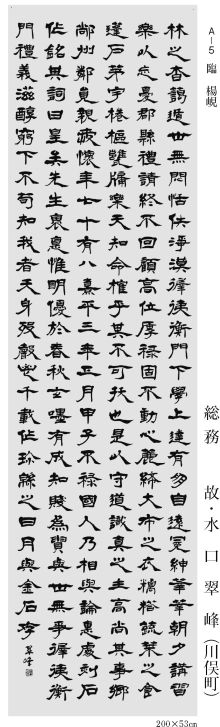 A-5 臨 楊峴
総務 故・水口翠峰(川俣町)
林之香鷊遁世無悶恬佚淨漠徲徥衡門下學上達有朋自遠冕紳莘莘朝夕講習
樂以忘憂郡縣禮請終不回顧高位厚祿固不動心麤絺大布之衣糲荅蔬菜之食
蓬戶茅宇棬樞甕牖樂天知命榷乎其不可拔也是以守道識真之士高尚其事鄉
鄙州鄰見親疏懷年七十有八熹平三年正月甲子不祿國人乃相與論悳處刻石
作銘其詞曰皇矣先生褱悳惟明優於春秋玄嘿有成知賤為貴與世無爭徲徥衡
門禮義滋醇窮下不苟知我者天身歿聲邕千載作珍綿之日月與金石存
翠峰
200×53cm